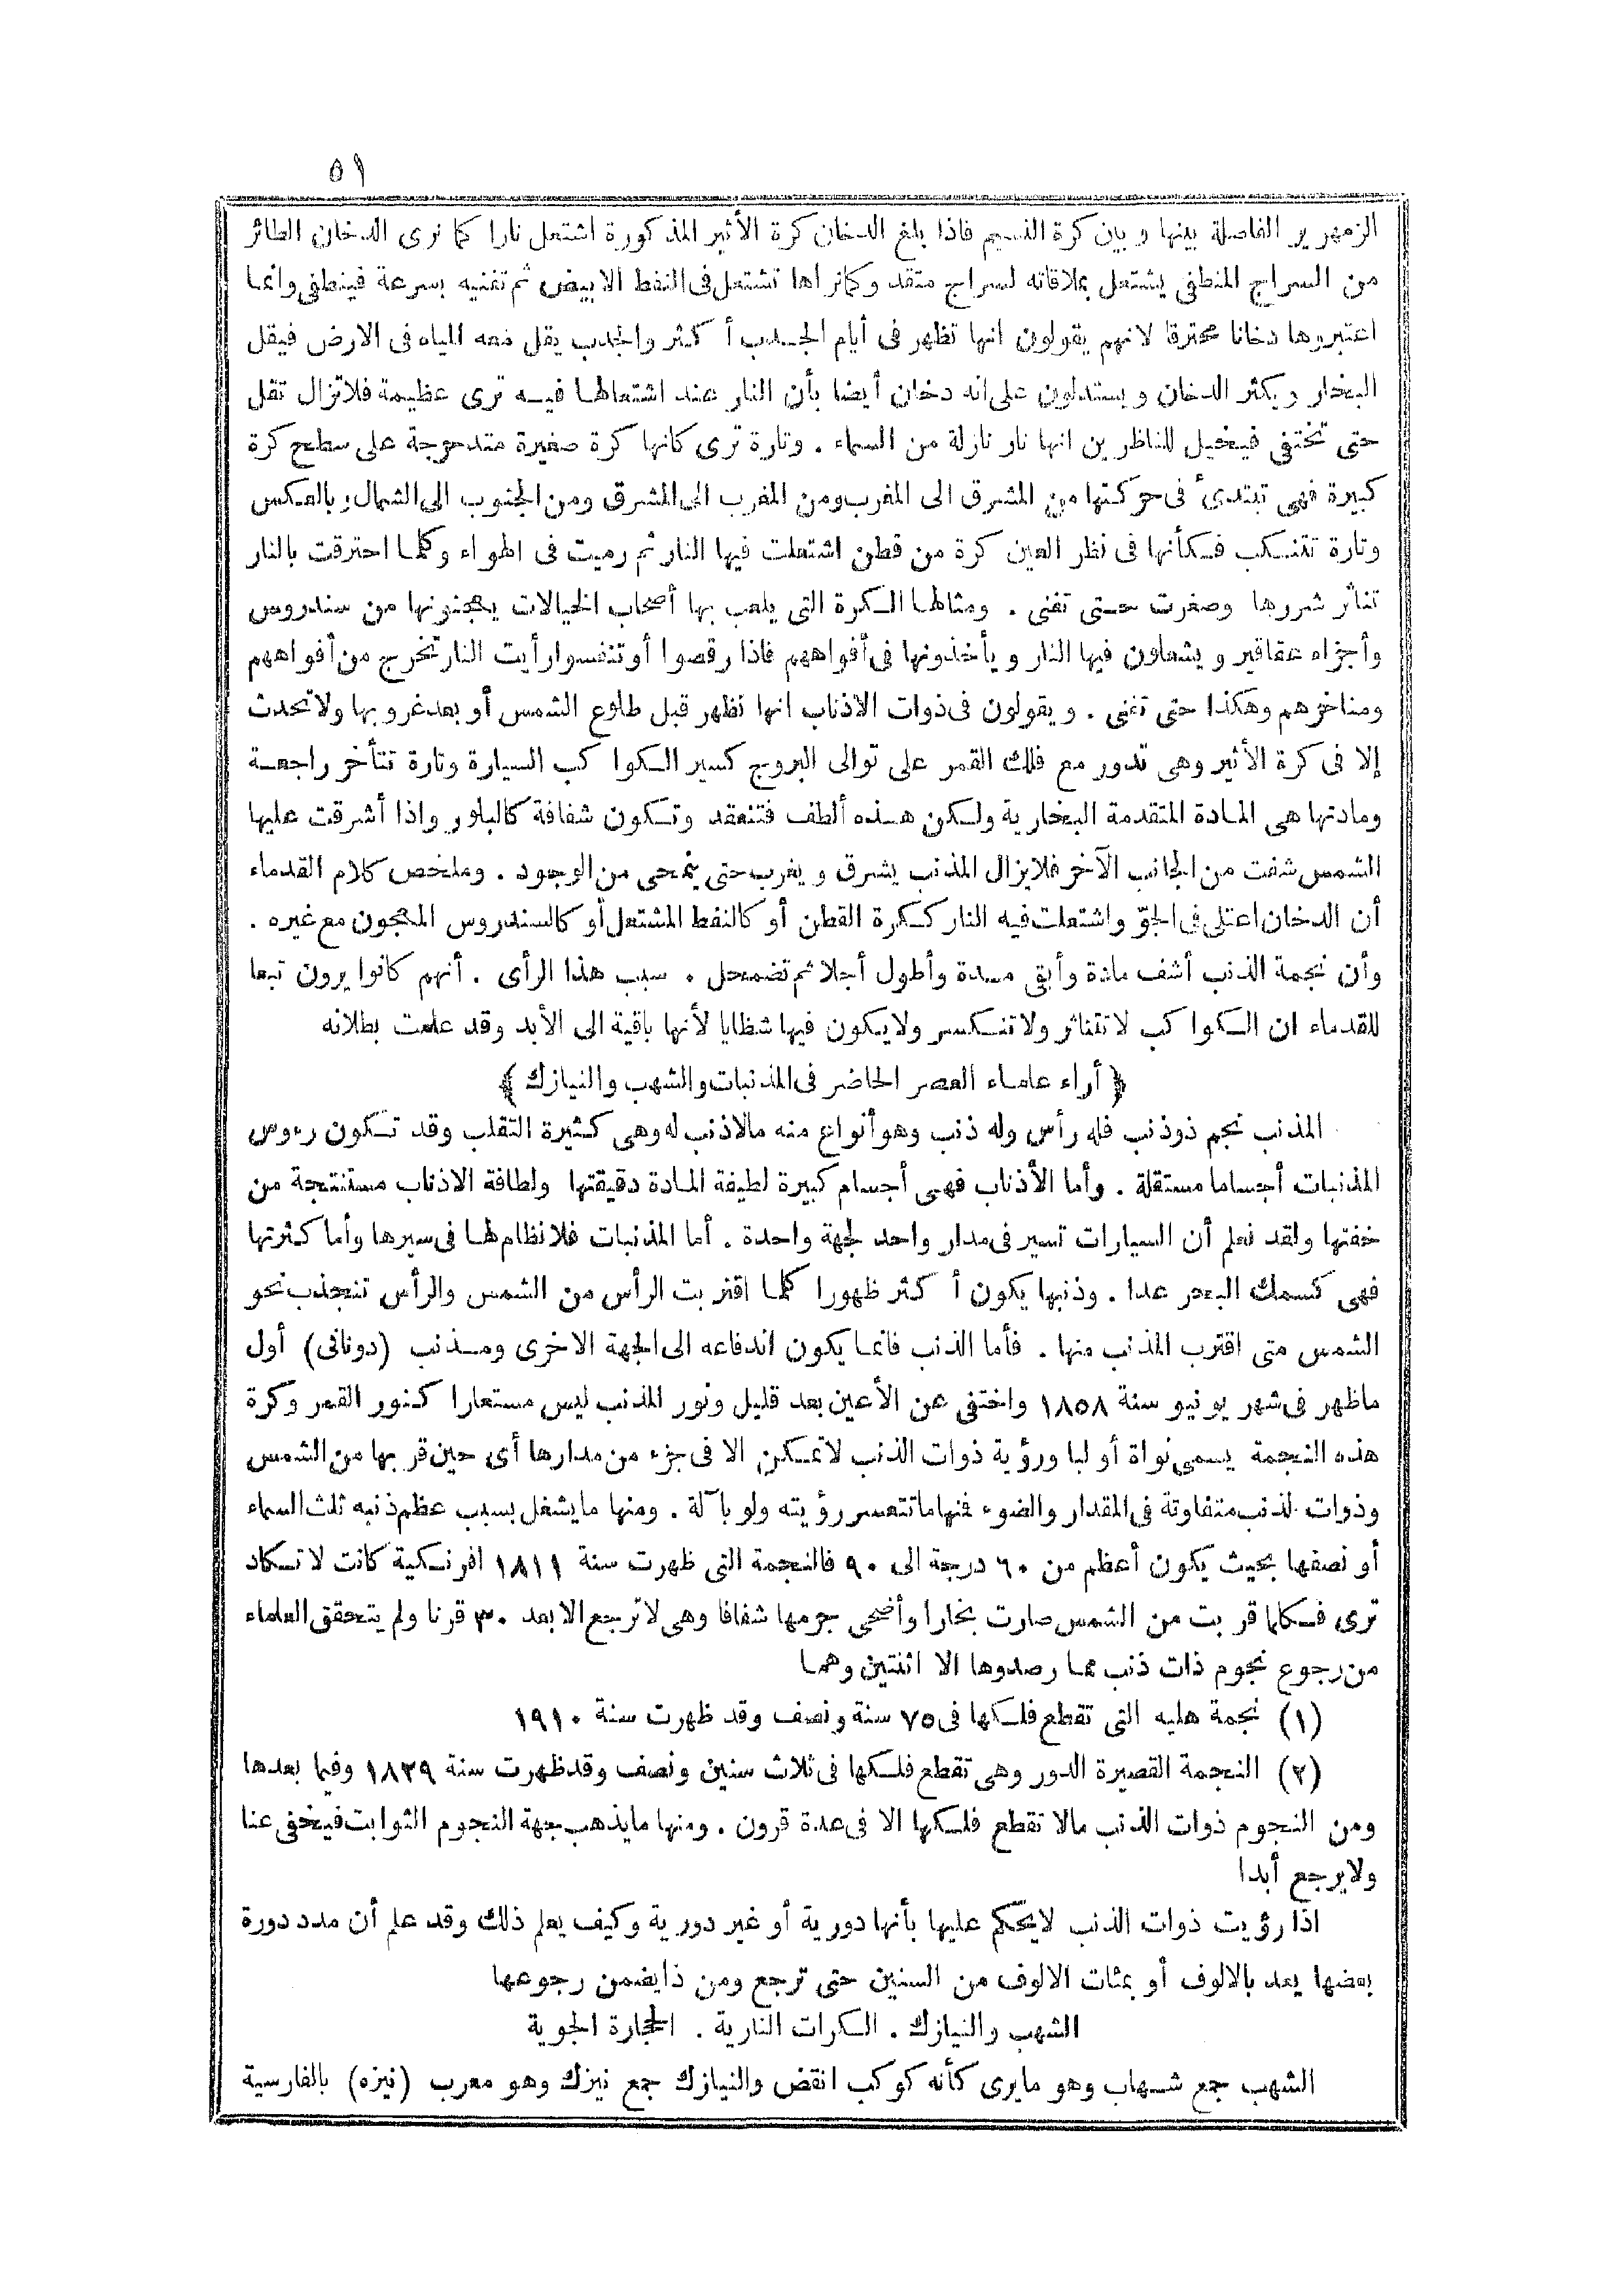 ٥١
الزمهرير الفاصلة بينها وبين كرة النسيم فاذا بلغ الدخان كرة الأثير المذكورة اشتعل نارا كما نرى الدخان الطائر
من السراج المنطفئ يشتعل بملاقاته لسراج متقد وكما نراها تشتعل فى النفط الابيض ثم تفنيه بسرعة فينطفئ وانما
اعتبروها دخانا محترقا لانهم يقولون انها تظهر فى أيام الجدب أكثر والجدب يقل معه المياه فى الارض فيقل
البخار ويكثر الدخان ويستدلون على انه دخان أيضا بأن النار عند اشتعالها فيه ترى عظيمة فلاتزال تقل
حتى تختفى فيخيل للناظرين انها نار نازلة من السماء . وتارة ترى كانها كرة صغيرة متدحرجة على سطح كرة
كبيرة فهى تبتدئ فى حركتها من المشرق الى المغرب ومن المغرب الى المشرق ومن الجنوب الى الشمال وبالعكس
وتارة تتنكب فكأنها فى نظر العين كرة من قطن اشتعلت فيها النار ثم رميت فى الهواء وكلما احترقت بالنار
تناثر شررها وصغرت حتى تفنى . ومثالها الكرة التى يلعب بها أصحاب الخيالات يعجنونها من سندروس
وأجزاء عقاقير ويشعلون فيها النار ويأخذونها فى أفواههم فاذا رقصوا أو تنفسوا رأيت النار تخرج من أفواههم
ومناخرهم وهكذا حتى تفنى . ويقولون فى ذوات الاذناب انها تظهر قبل طلوع الشمس أو بعد غروبها ولا تحدث
إلا فى كرة الأثير وهى تدور مع فلك القمر على توالى البروج كسير الكواكب السيارة وتارة تتأخر راجعة
ومادتها هى المادة المتقدمة البخارية ولكن هذه ألطف فتنعقد وتكون شفافة كالبلور واذا أشرقت عليها
الشمس شفت من الجانب الآخر فلايزال المذنب يشرق ويغرب حتى ينمحى من الوجود . وملخص كلام القدماء
أن الدخان اعتلى فى الجوّ واشتعلت فيه النار ككرة القطن أو كالنفط المشتعل أو كالسندروس المعجون مع غيره .
وأن نجمة الذنب أشف مادة وأبقى مدة وأطول أجلا ثم تضمحل . سبب هذا الرأى . أنهم كانوا يرون تبعا
للقدماء ان الكواكب لاتتناثر ولاتنكسر ولايكون فيها شظايا لأنها باقية الى الأبد وقد علمت بطلانه
﴿ أراء علماء العصر الحاضر فى المذنبات والشهب والنيازك ﴾
المذنب نجم ذوذنب فله رأس وله ذنب وهو أنواع منه مالاذنب له وهى كثيرة التقلب وقد تكون رءوس
المذنبات أجساما مستقلة . وأما الأذناب فهى أجسام كبيرة لطيفة المادة دقيقتها ولطافة الاذناب مستنتجة من
خفتها ولقد نعلم أن السيارات تسير فى مدار واحد لجهة واحدة . أما المذنبات فلا نظام لها فى سيرها وأما كثرتها
فهى كسمك البحر عدا . وذنبها يكون أكثر ظهورا كلما اقتربت الرأس من الشمس والرأس تنجذب نحو
الشمس متى اقترب المذنب منها . فأما الذنب فانما يكون اندفاعه الى الجهة الاخرى ومذنب (دوناتى) أول
ماظهر فى شهر يونيو سنة ١٨٥٨ واختفى عن الأعين بعد قليل ونور المذنب ليس مستعارا كنور القمر وكرة
هذه النجمة يسمى نواة أو لبا ورؤية ذوات الذنب لاتمكن الا فى جزء من مدارها أى حين قربها من الشمس
وذوات الذنب متفاوتة فى المقدار والضوء فمنها ماتتعسر رؤيته ولو بآلة . ومنها مايشغل بسبب عظم ذنبه ثلث السماء
أو نصفها بحيث يكون أعظم من ٦٠ درجة الى ٩٠ فالنجمة التى ظهرت سنة ١٨١١ افرنكية كانت لاتكاد
ترى فكلما قربت من الشمس صارت بخارا وأضحى جرمها شفافا وهى لاترجع الا بعد ٣٠ قرنا ولم يتحقق العلماء
من رجوع نجوم ذات ذنب مما رصدوها الا اثنتين وهما
(١) نجمة هليه التى تقطع فلكها فى ٧٥ سنة ونصف وقد ظهرت سنة ١٩١٠
(٢) النجمة القصيرة الدور وهى تقطع فلكها فى ثلاث سنين ونصف وقد ظهرت سنة ١٨٢٩ وفيما بعدها
ومن النجوم ذوات الذنب مالا تقطع فلكها الا فى عدة قرون . ومنها مايذهب جهة النجوم الثوابت فيختفى عنا
ولايرجع أبدا
اذا رؤيت ذوات الذنب لايحكم عليها بأنها دورية أو غير دورية وكيف يعلم ذلك وقد علم أن مدد دورة
بعضها يعد بالالوف أو بمئات الالوف من السنين حتى ترجع ومن ذا يضمن رجوعها
الشهب والنيازك . الكرات النارية . الحجارة الجوية
الشهب جمع شهاب وهو مايرى كأنه كوكب انقض والنيازك جمع نيزك وهو معرب (نيزه) بالفارسية